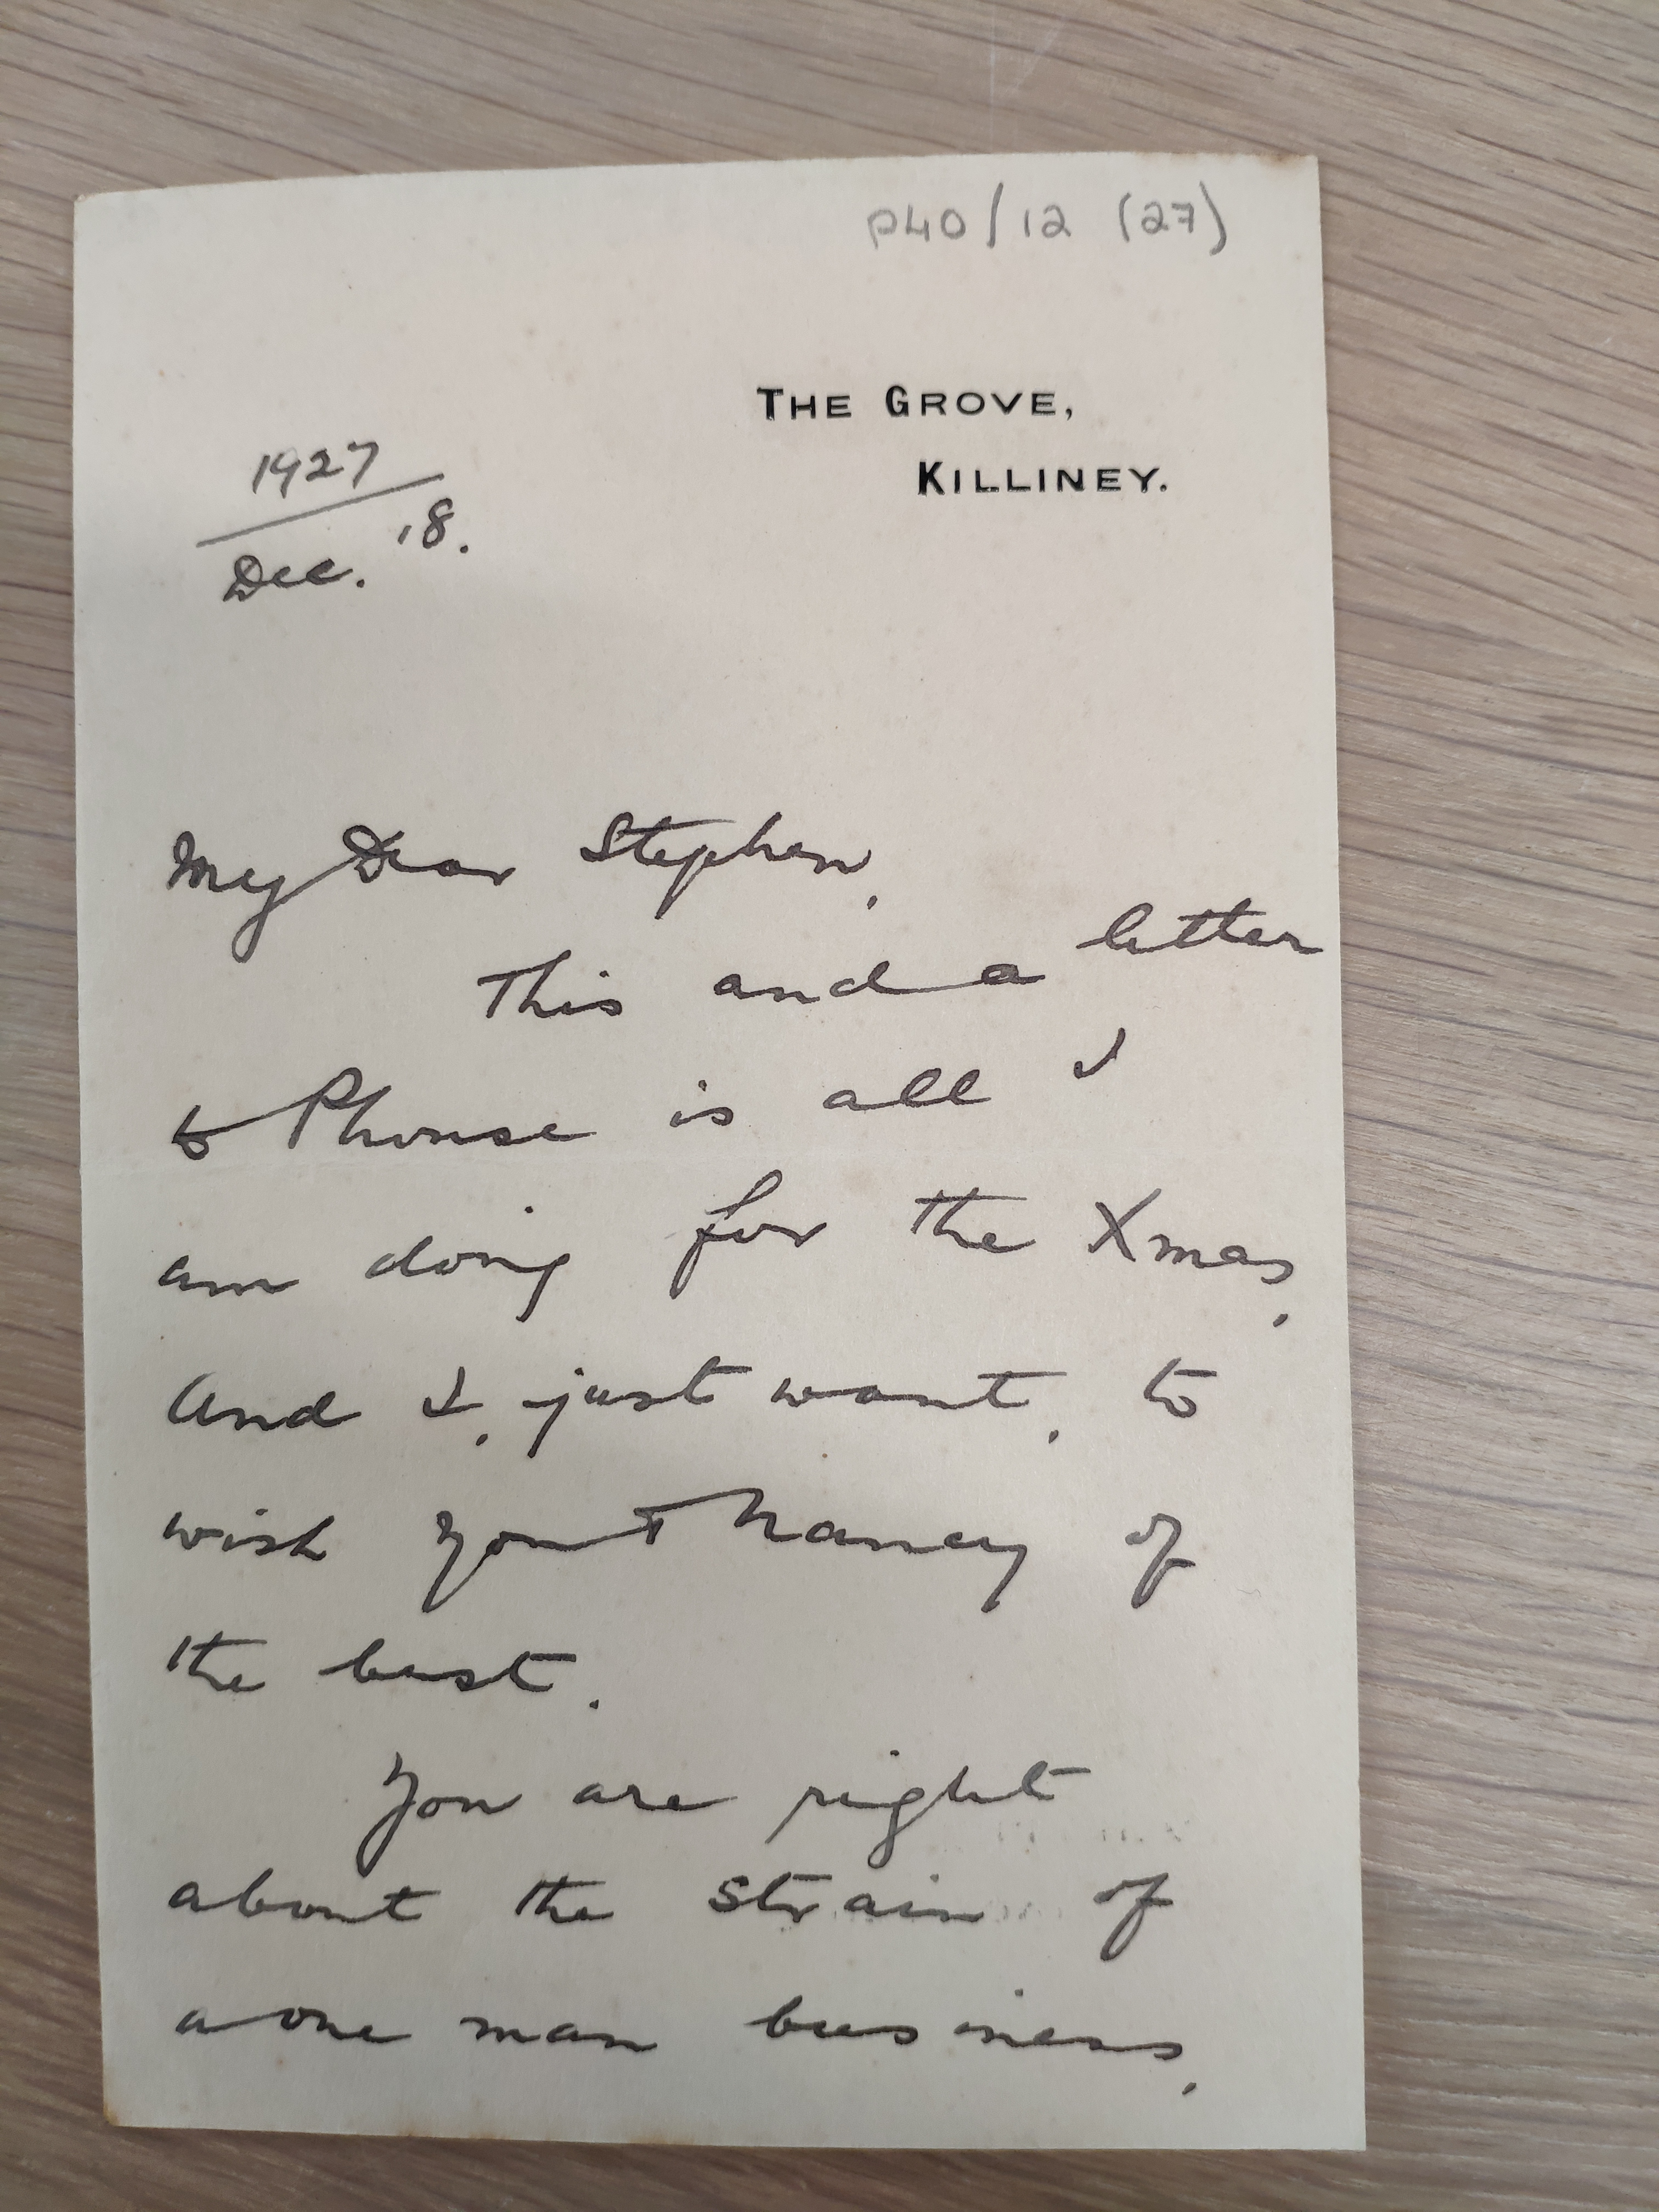 P40/12 (27)
THE GROVE,
KILLINEY.
1927
Dec. 18.
My Dear Stephen,
This and a letter
to is all I
am doing for the Xmas,
And I, just want, to
wish you + Nancy of
the best.
You are right
about the strain of
a one man business,